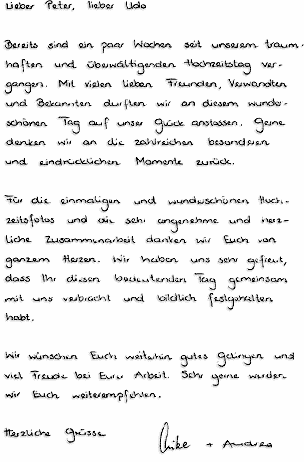 Lieber Peter, lieber Udo
Bereits sind ein paar Wochen seit unserem traum-
haften und überwältigenden Hochzeitstag ver-
gangen. Mit vielen lieben Freunden, Verwandten
und Bekannten durften wir an diesem wunder-
schönen Tag auf unser Glück anstossen. Gerne
denken wir an die zahlreichen besonderen
und eindrücklichen Momente zurück.
Für die einmaligen und wunderschönen Hoch-
zeitsfotos und die sehr angenehme und herz-
liche Zusammenarbeit danken wir Euch von
ganzem Herzen. Wir haben uns sehr gefreut,
dass Ihr diesen bedeutenden Tag gemeinsam
mit uns verbracht und bildlich festgehalten
habt.
Wir wünschen Euch weiterhin gutes Gelingen und
viel Freude bei Eurer Arbeit. Sehr gerne werden
wir Euch weiterempfehlen.
Herzliche Grüsse + Andrea